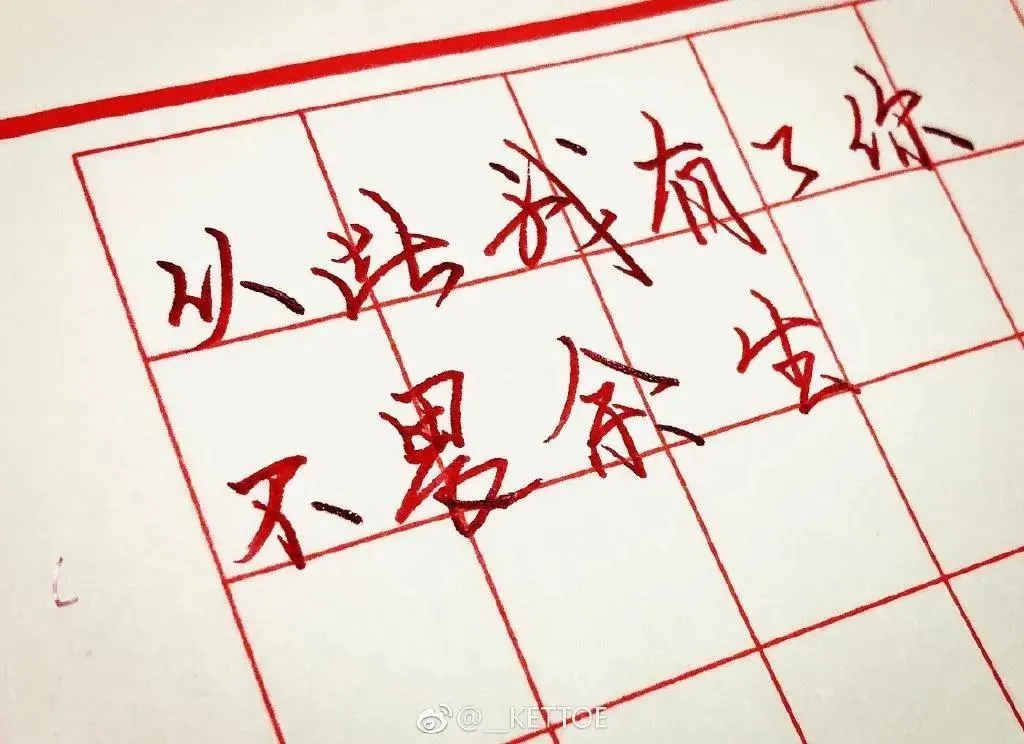 以我有了你
不畏余生
@__KETTOE